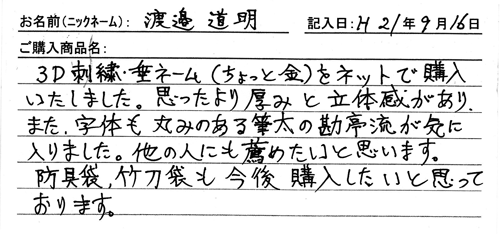 お名前(ニックネーム): 渡邉 道明 記入日:H21年9月16日
ご購入商品名:
3D刺繍・垂ネーム(ちょっと金)をネットで購入
いたしました。思ったより厚みと立体感があり、
また、字体も丸みのある筆太の勘亭流が気に
入りました。他の人にも薦めたいと思います。
防具袋、竹刀袋も今後購入したいと思って
おります。